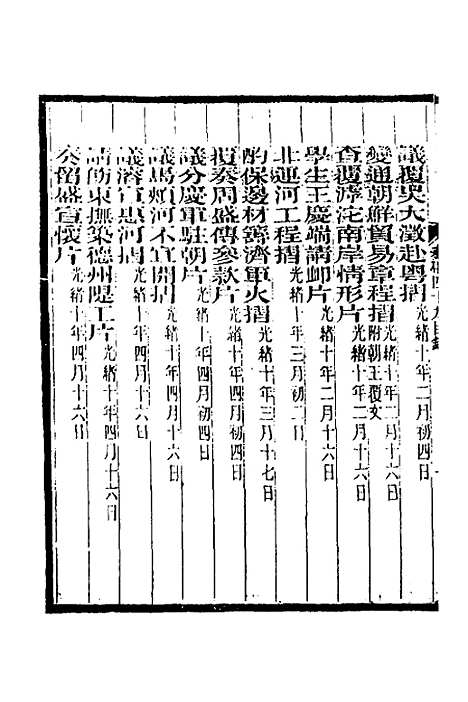 議覆吳大澂赴粵摺 光緒十年二月初四日
變通朝鮮貿易章程摺 附朝王覆文 光緒十年二月十六日
查覆滹沱南岸情形片 光緒十年二月十六日
學生王慶端請卹片 光緒十年二月十六日
北運河工程摺 光緒十年三月初二日
酌保邊材籌濟軍火摺 光緒十年三月十七日
覆奏周盛傳參款片 光緒十年四月初四日
議分慶軍駐朝片 光緒十年四月初四日
議馬頰河不宜開片 光緒十年四月十六日
議濬宣惠河摺 光緒十年四月十六日
請飭東撫築德州隄工片 光緒十年四月十六日
奏留盛宣懷片 光緒十年四月十六日